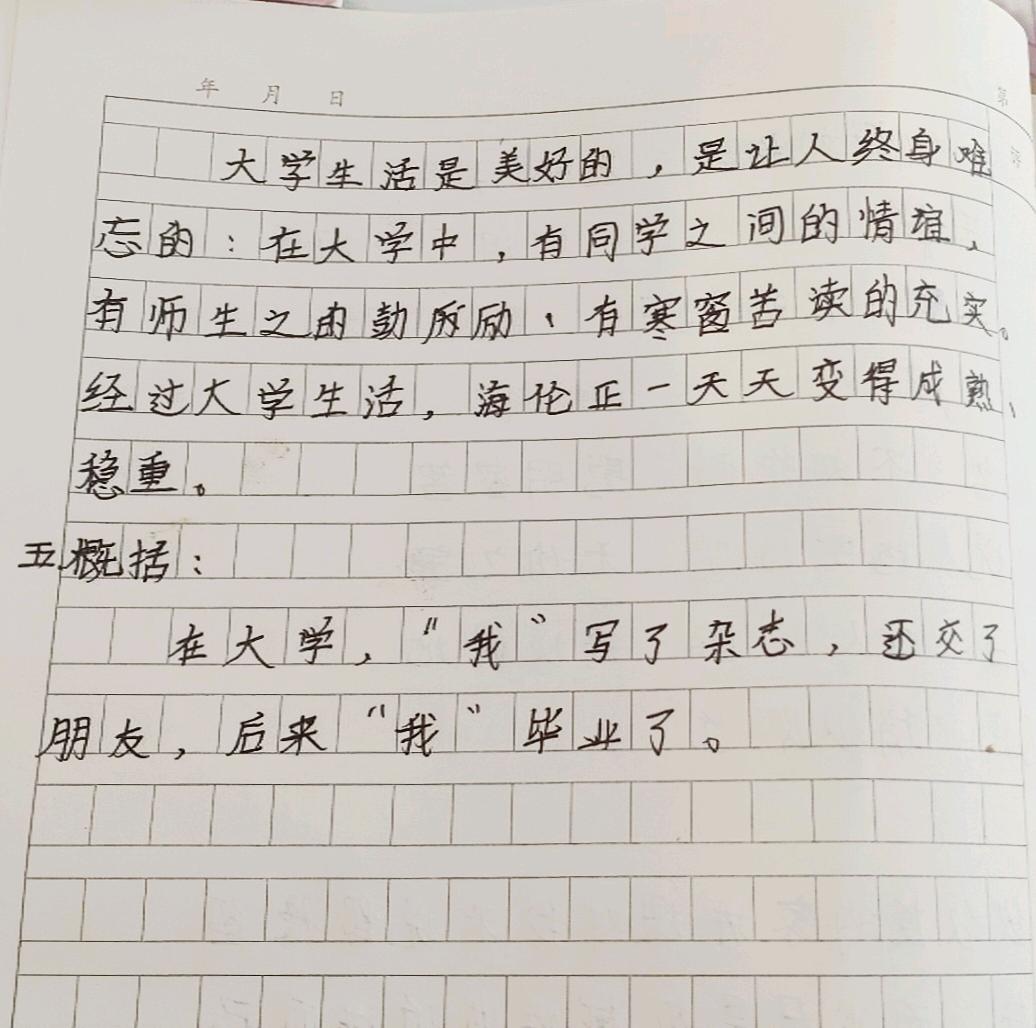 年 月 日
大学生活是美好的，是让人终身难
忘的：在大学中，有同学之间的情谊，
有师生之由鼓励、有寒窗苦读的充实。
经过大学生活，海伦正一天天变得成熟、
稳重。
五.概括：
在大学，“我”写了杂志，还交了
朋友，后来“我”毕业了。